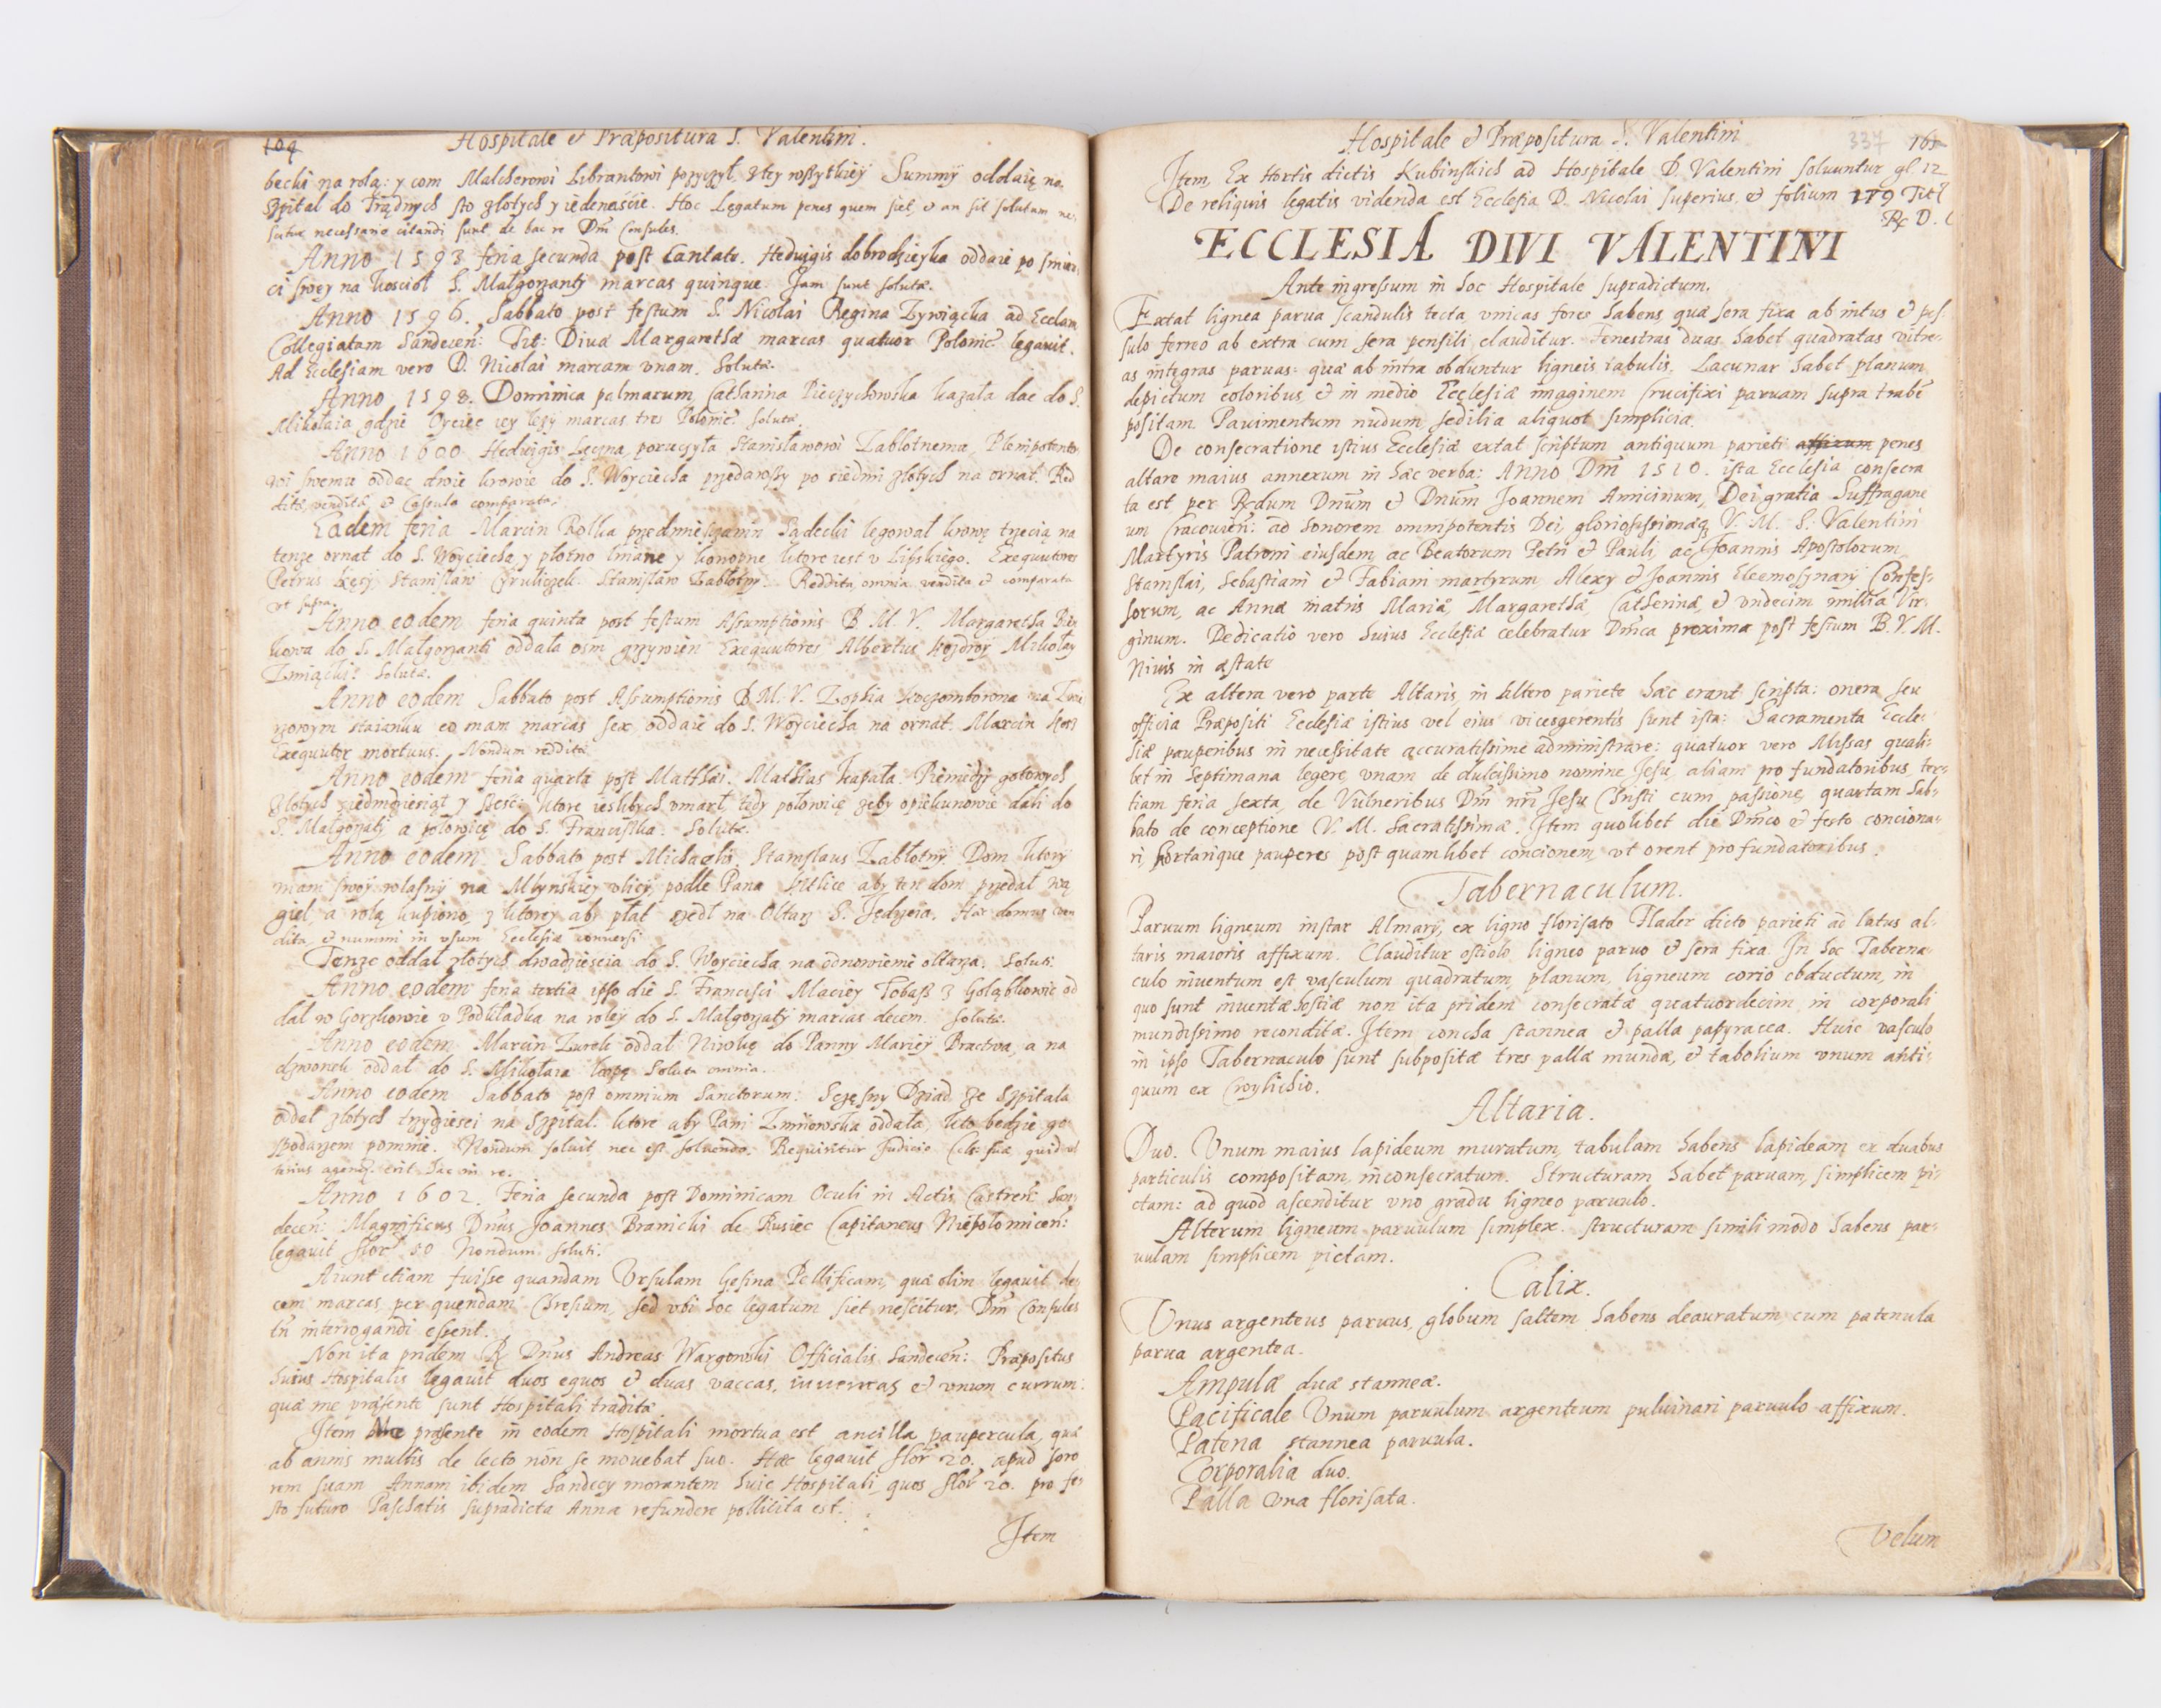 Hospitale & Præpositura S. Valentini.
becki na rolą: y com Malcherowi Librantowi pozyczył. z tey wszytkiey Summy oddaię na
Szpital do Trądnych sto złotych y iedenaście. Hoc Legatum penes quem siet, & an sit solutum
scitur necessario citandi sunt de hac re Dm̃ Consules.
Anno 1593 feria secunda post Cantate. Heduigis dobrodzieyka oddaie po śmier
ci swey na kosciół S. Małgorzanty marcas quinque. Jam sunt solutæ.
Anno 1596. Sabbato post festum S. Nicolai Regina Zywiącka ad Ecclam
Collegiatam Sandeceñ: Tit: Diuæ Margarethæ marcas quatuor Polonic̃ legauit.
Ad Ecclesiam vero D. Nicolai marcam vnam. Solutæ.
Anno 1598. Dominica palmarum, Catharina Pieczychowska kazała dac do S.
Mikołaia gdzie Oyciec iey lezy marcas tres Polonic̃ solutæ.
Anno 1600 Heduigis Łącna poraczyła Stanisławowi Zabłotnemu, Plenipotento
wi swemu oddac dwie krowie do S. Woyciecha przedawszy po siedmi złotych na ornat. Red
ditæ, venditæ & Casula comparata.
Eadem feria Marcin Rolka przedmieszczanin Sądecki legował krowę trzecią na
tenze ornat do S. Woyciecha y płotno lniane y konopne ktore iest v Lipskiego. Exequutores
Petrus Kęsy, Stanisław Cyruliczek. Stanisław Zabłotny. Reddita omnia vendita & comparata
vt supra.
Anno eodem feria quinta post festum Assumptionis B. M. V. Margaretha
kowa do S. Małgorzanti oddała ośm grzywien Exequutores Albertus Mikołay
Solutæ.
Anno eodem Sabbato post Assumptionis B. M. V. Zophia
staianku co mam marcas sex, oddaie do S. Woyciecha na ornat. Marcin
Exequutor mortuus. Nondum redditæ
Anno eodem feria quarta post Matthæi. Mathias kazała. Pieniędzy gotowych
złotych siedmdziesiąt y sześć: ktore ieslibych vmarł, tedy połowicę zeby opiekunowie dali do
S. Małgorzaty a połowicę do S. Franciszka. Solutæ.
Anno eodem. Sabbato post Michaelis. Stanislaus Zabłotny. Dom ktory
mam swoy własny na Młynskiey vlicy, podle Pana aby ten dom przedał
a rolą kupiono, z ktorey aby płat szedł na Ołtarz S. Jędrzeia. Hæc domus ven
dita, & nummi in vsum Ecclesiæ conuersi
Tenze oddał złotych dwadziescia do S. Woyciecha na odnowienie ołtarza. Soluti.
Anno eodem feria tertia ipso die S. Francisci Maciey Tobasz z Gołąbkowic od
dal w Gorzkowie v Podkladka na roley do S. Małgorzaty marcas decem. Solutæ.
Anno eodem Marcin Zurek oddał Niwkę do Panny Mariey Bractwa, a na
dzwonek oddał do S. Mikołaia kopę Soluta omnia.
Anno eodem Sabbato post omnium Sanctorum. Szczęsny Dziad ze Szpitala
oddał złotych trzydziesci na Szpital. ktore aby Pani Zmijowska oddała, kto bedzie go
spodarzem pomnie. Nondum soluit nec est soluendo. Requiritur Judicio Cels: suæ quid vl
terius agendũ erit hac in re.
Anno 1602. Feria secunda post Dominicam Oculi in Actis Castreñ: San
deceñ: Magnificus Dñus Joannes Branicki de Rusiec Capitaneus Niepołomiceñ:
legauit flor 50 Nondum soluti.
Aiunt etiam fuisse quandam Vrsulam Gesina Pellificam, quæ olim legauit de
cem marcas per quendam Chresium, sed vbi hoc legatum siet nescitur, Dm̃ Consules
tñ interrogandi essent.
Non ita pridem R̃ Dñus Andreas Wargowski Officialis Sandeceñ: Præpositus
huius Hospitalis legauit duos equos & duas vaccas, iuuencas & vnum currum:
quæ me præsente sunt Hospitali tradita.
Item me præsente in eodem Hospitali mortua est ancilla paupercula, quæ
ab annis multis de lecto non se mouebat suo. Hæc legauit flor 20. apud soro
rem suam Annam ibidem Sandecy morantem huic Hospitali, quos flor 20. pro fe
sto futuro Paschatis supradicta Anna refundere pollicita est.
Item
Hospitale & Præpositura S. Valentini
337 161
Item, Ex Hortis dictis Kubinskich ad Hospitale D. Valentini soluuntur gl 12
De reliquis legatis videnda est Ecclesia D. Nicolai superius & folium 179 Tit
R D.
ECCLESIA DIVI VALENTINI
Ante ingressum in hoc Hospitale supradictum.
Extat lignea parua scandulis tecta, vnicas fores habens, quæ sera fixa ab intus & pes
sulo ferreo ab extra cum sera pensili clauditur. Fenestras duas habet quadratas vitre-
as integras paruas: quæ ab intra obduntur ligneis tabulis. Lacunar habet planum
depictum coloribus, & in medio Ecclesiæ imaginem Crucifixi paruam supra trabẽ
positam. Pauimentum nudum, sedilia aliquot simplicia.
De consecratione istius Ecclesiæ extat scriptum antiquum parieti affixum penes
altare maius annexum in hæc verba: Anno Dm̃ 1510. ista Ecclesia consecra
ta est per Rdum Dnũm & Dnũm Joannem Amicinum, Dei gratia Suffragane
um Cracouieñ: ad honorem omnipotentis Dei, gloriosissimæq V. M. S. Valentini
Martyris Patroni eiusdem, ac Beatorum Petri & Pauli, ac Joannis Apostolorum,
Stanislai, Sebastiani & Fabiani martyrum, Alexy & Joannis Eleemosynarij Confes-
sorum, ac Annæ matris Mariæ, Margarethæ, Catherinæ, & vndecim millia Vir-
ginum. Dedicatio vero huius Ecclesiæ celebratur Dm̃ca proxima post festum B. V. M.
Niuis in æstate
Ex altera vero parte Altaris, in altero pariete hæc erant scripta: onera seu
officia Præpositi Ecclesiæ istius vel eius vicesgerentis sunt ista: Sacramenta Eccle-
siæ pauperibus in necessitate accuratissime administrare: quatuor vero Missas quali-
bet in septimana legere, vnam de dulcissimo nomine Jesu, aliam pro fundatoribus, ter-
tiam feria sexta, de Vulneribus Dm̃ nr̃i Jesu Christi cum passione, quartam Sab-
bato de conceptione V. M. Sacratissimæ. Item quolibet die Dm̃co & festo conciona-
ri, hortarique pauperes post quamlibet concionem, vt orent pro fundatoribus.
Tabernaculum.
Paruum ligneum instar Almarij, ex ligno florisato Flader dicto parieti ad latus al-
taris maioris affixum. Clauditur ostiolo ligneo paruo & sera fixa. In hoc Taberna
culo inuentum est vasculum quadratum, planum, ligneum corio obductum, in
quo sunt inuentæ hostiæ non ita pridem consecratæ quatuordecim, in corporali
mundissimo reconditæ. Item concha stannea & palla papyracea. Huic vasculo
in ipso Tabernaculo sunt subpositæ tres pallæ mundæ, & tabolium vnum anti-
quum ex Cwylichio.
Altaria.
Duo. Vnum maius lapideum muratum, tabulam habens lapideam ex duabus
particulis compositam, inconsecratum. Structuram habet paruam, simplicem pi-
ctam: ad quod ascenditur vno gradu ligneo paruulo.
Alterum ligneum paruulum simplex. structuram simili modo habens par-
uulam simplicem pictam.
Calix.
Vnus argenteus paruus, globum saltem habens deauratum, cum patenula
parua argentea.
Ampulæ duæ stanneæ.
Pacificale Vnum paruulum argenteum puluinari paruulo affixum.
Patena stannea paruula.
Corporalia duo.
Palla vna florisata.
Velum